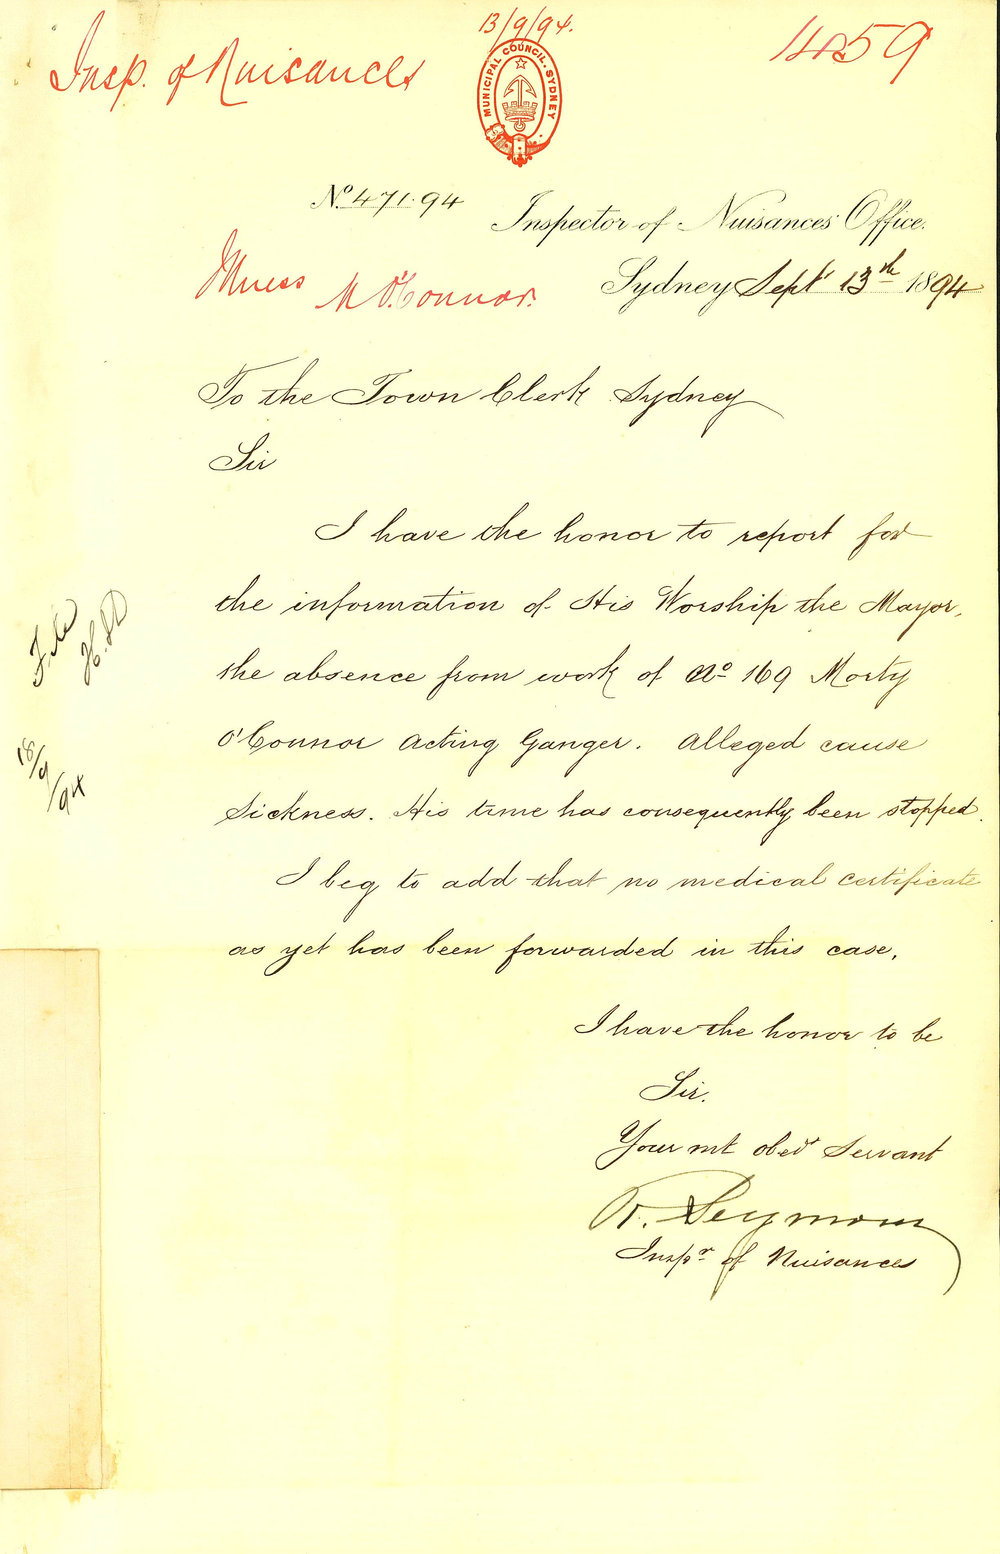 13/9/94.
Insp. of Nuisances
1459
MUNICIPAL COUNCIL. SYDNEY
No. 471.94
Inspector of Nuisances' Office.
Illness M O'Connor.
Sydney Sept 13th 1894
To the Town Clerk Sydney
Sir
I have the honor to report for
the information of His Worship the Mayor,
the absence from work of No 169 Morty
O'Connor Acting Ganger. Alleged cause
Sickness. His time has consequently been stopped.
I beg to add that no medical certificate
as yet has been forwarded in this case.
I have the honor to be
Sir.
Your mt obedt Servant
R. Seymour
Inspr of Nuisances
File
18/9/94